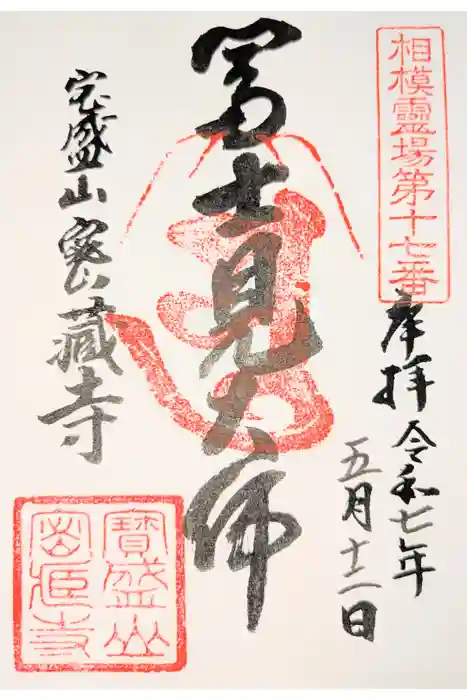 相模靈場第十七番
奉拝 令和七年
五月十二日
富士見大師
宝盛山 密蔵寺
寶盛山
密蔵寺